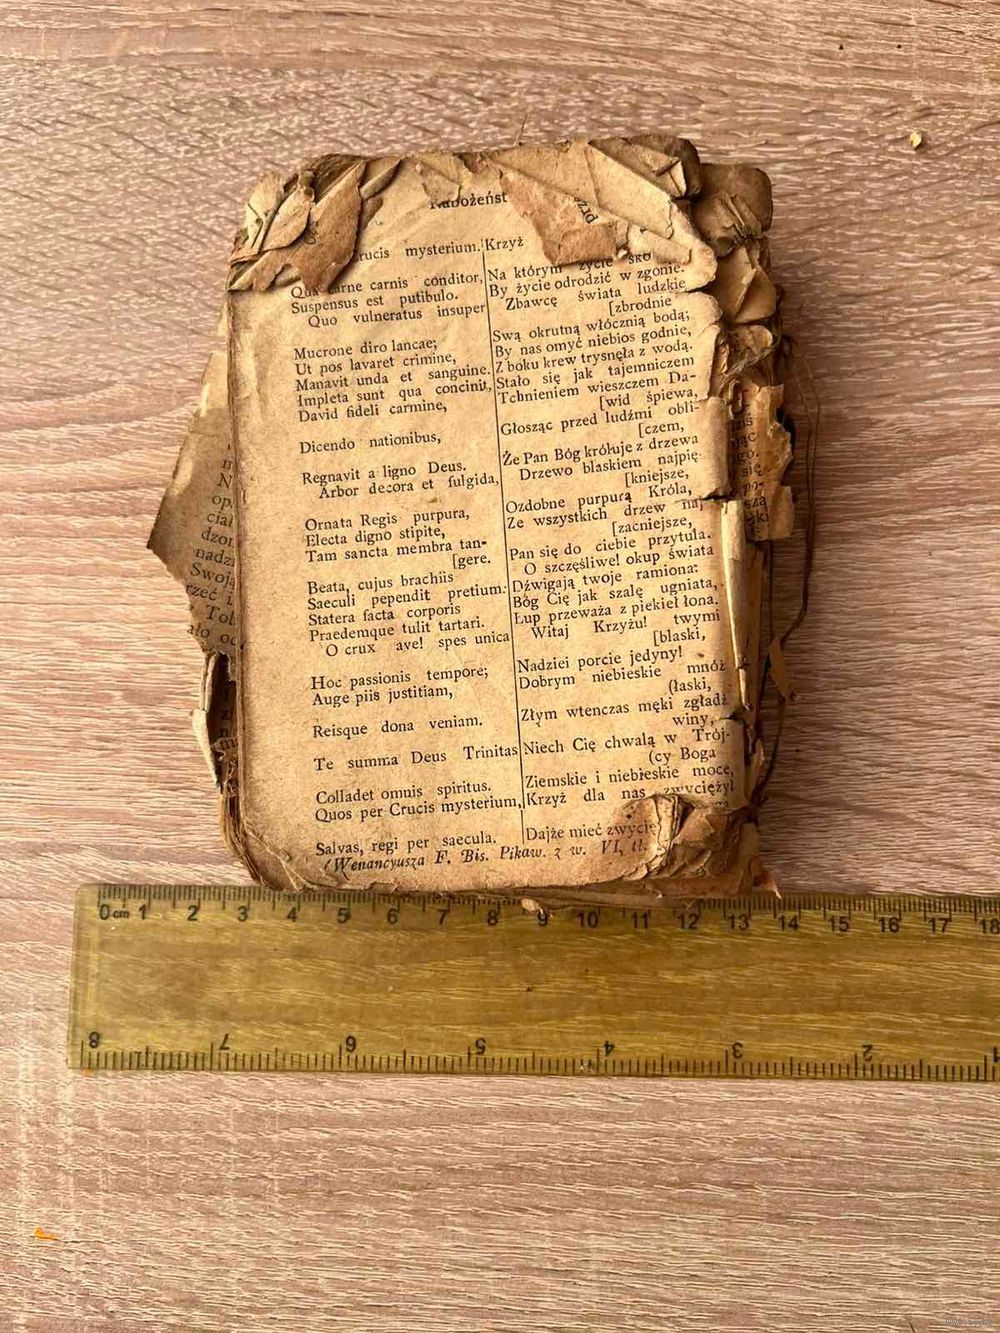 Nabożeńst
prze
Crucis mysterium.
Qua carne carnis conditor,
Suspensus est putibulo.
Quo vulneratus insuper
Mucrone diro lanceae;
Ut nos lavaret crimine,
Manavit unda et sanguine.
Impleta sunt qua concinit,
David fideli carmine,
Dicendo nationibus,
Regnavit a ligno Deus.
Arbor decora et fulgida,
Ornata Regis purpura,
Electa digno stipite,
Tam sancta membra tan-
[gere.
Beata, cujus brachiis
Saeculi pependit pretium.
Statera facta corporis
Praedemque tulit tartari.
O crux ave! spes unica
Hoc passionis tempore;
Auge piis justitiam,
Reisque dona veniam.
Te summa Deus Trinitas
Colladet omnis spiritus.
Quos per Crucis mysterium,
Salvas, regi per saecula.
Krzyż
Na którym życie sko
By życie odrodzić w zgonie.
Zbawcę świata ludzkie
[zbrodnie
Swą okrutną włócznią bodą;
By nas omyć niebios godnie,
Z boku krew trysnęła z wodą.
Stało się jak tajemniczem
Tchnieniem wieszczem Da-
[wid śpiewa,
Głosząc przed ludźmi obli-
[czem,
Że Pan Bóg króluje z drzewa
Drzewo blaskiem najpię-
[kniejsze,
Ozdobne purpurą Króla,
Ze wszystkich drzew naj
[zacniejsze,
Pan się do ciebie przytula.
O szczęśliwe! okup świata
Dźwigają twoje ramiona:
Bóg Cię jak szalę ugniata,
Łup przeważa z piekieł łona.
Witaj Krzyżu! twymi
[blaski,
Nadziei porcie jedyny!
Dobrym niebieskie mnóż
(łaski,
Złym wtenczas męki zgładź
winy,
Niech Cię chwalą w Trój-
(cy Boga
Ziemskie i niebieskie moce,
Krzyż dla nas zwyciężył
Dajże mieć zwycię
(Wenancyusza F. Bis. Pikaw. z w. VI, tł.
N
op
ciał
dzon
nadzi
Swoją
rzeć i
Tob
ało oc
się
po-
szą
0 cm 1 2 3 4 5 6 7 8 9 10 11 12 13 14 15 16 17 18
8 7 6 5 4 3 2 1